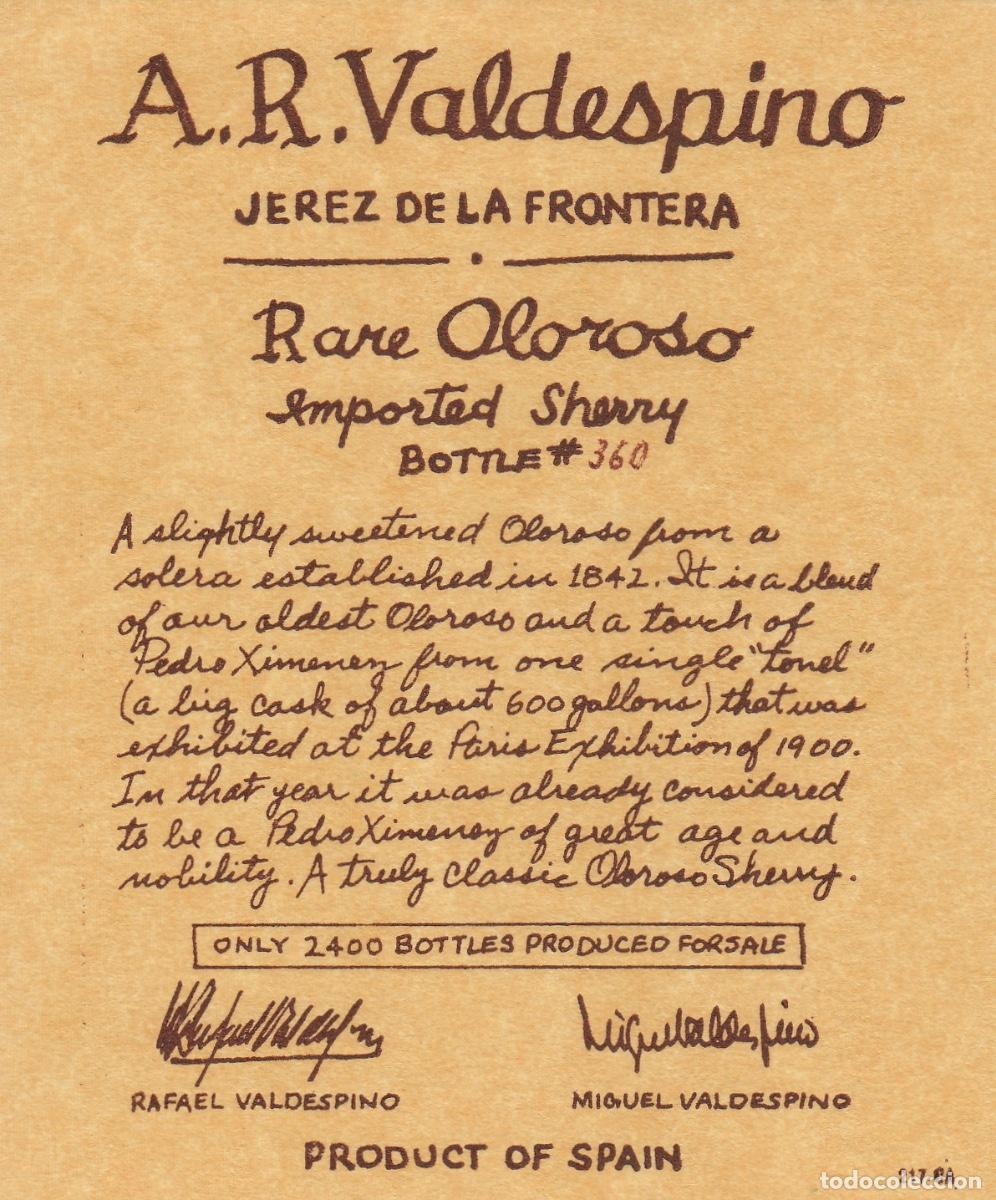 A.R. Valdespino
JEREZ DE LA FRONTERA
Rare Oloroso
Imported Sherry
BOTTLE # 360
A slightly sweetened Oloroso from a
solera established in 1842. It is a blend
of our oldest Oloroso and a touch of
Pedro Ximenez from one single "tonel"
(a big cask of about 600 gallons) that was
exhibited at the Paris Exhibition of 1900.
In that year it was already considered
to be a Pedro Ximenez of great age and
nobility. A truly classic Oloroso Sherry.
ONLY 2400 BOTTLES PRODUCED FOR SALE
Rafael Valdespino
Miguel Valdespino
RAFAEL VALDESPINO
MIGUEL VALDESPINO
PRODUCT OF SPAIN
todocoleccion